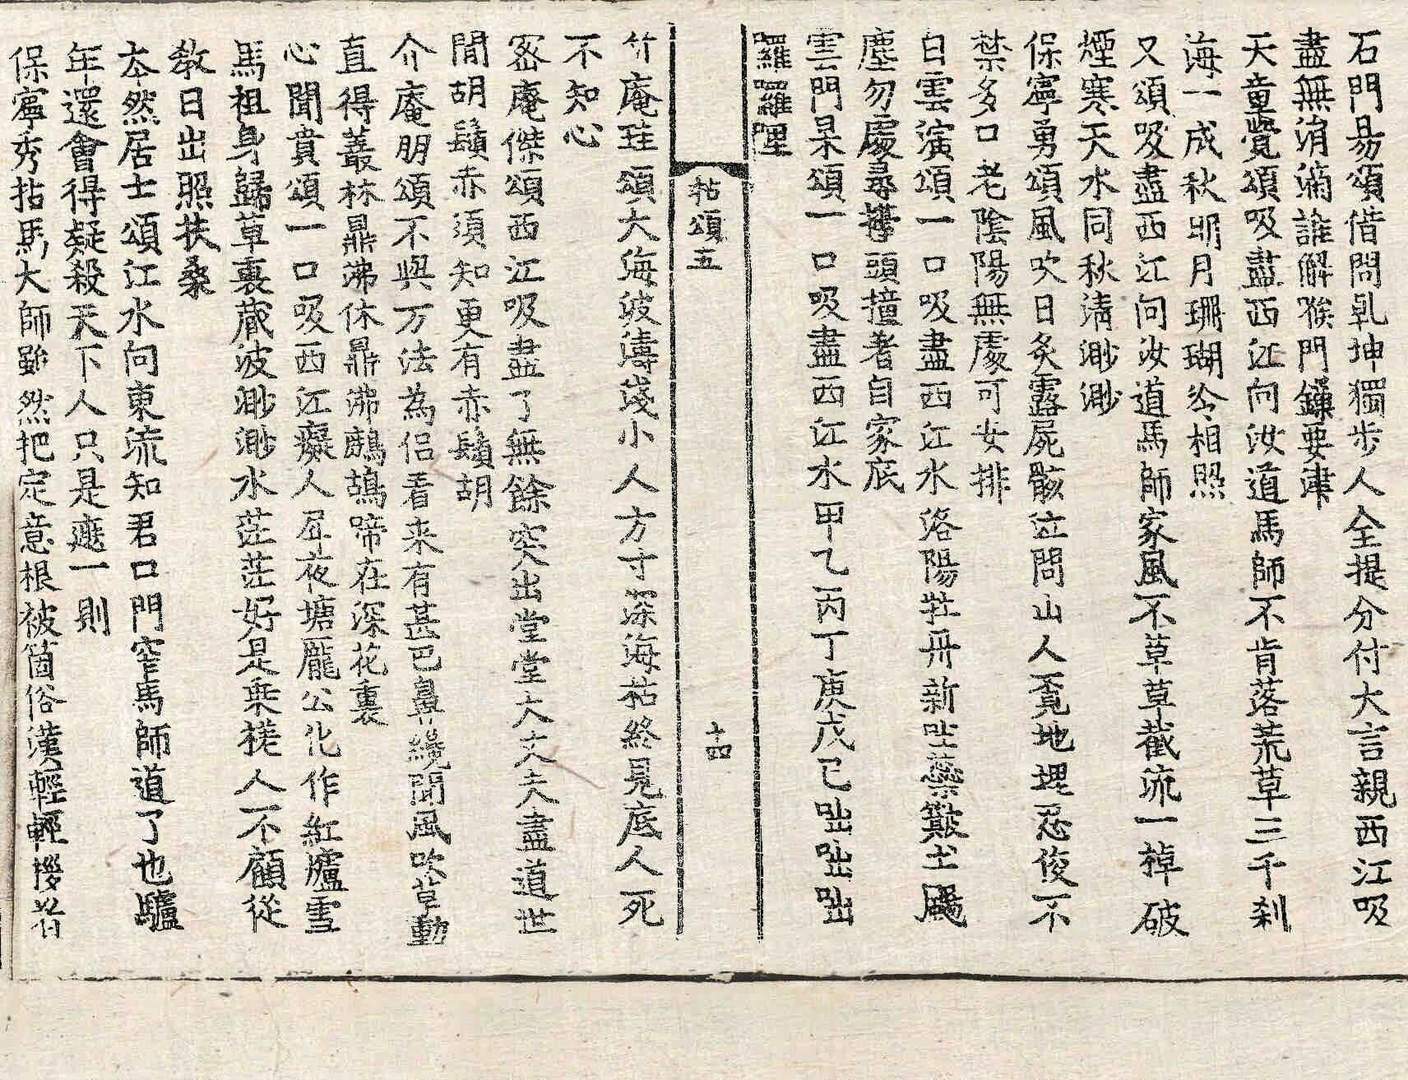 石門易頌借問乹坤獨步人全提分付大言親西江吸
盡無涓滴誰解猴門鏁要津
天童覺頌吸盡西江向汝道馬師不肯落荒草三千刹
海一成秋明月珊瑚冷相照
又頌吸盡西江向汝道馬師家風不草草截流一棹破
煙寒天水同秋清渺渺
保寧勇頌風吹日炙露屍骸泣問山人覔地埋忍俊不
禁多口老陰陽無處可安排
白雲演頌一口吸盡西江水洛陽牡丹新吐蘂簸土颺
塵勿處尋擡頭撞著自家底
雲門杲頌一口吸盡西江水甲乙丙丁庚戊己咄咄咄
囉囉哩
拈頌五
十四
竹庵珪頌大海波濤淺小人方寸深海枯終見底人死
不知心
密庵傑頌西江吸盡了無餘突出堂堂大丈夫盡道世
間胡鬚赤須知更有赤鬚胡
介庵朋頌不與万法為侣看来有甚巴鼻纔聞風吹草動
直得叢林鼎沸休鼎沸鷓鴣啼在深花裏
心聞賁頌一口吸西江癡人戽夜塘龐公化作紅爐雪
馬祖身歸草裏藏波渺渺水茫茫好是乗槎人不顧從
教日出照扶桑
本然居士頌江水向東流知君口門窄馬師道了也驢
年還會得疑殺天下人只是這一則
保寧秀拈馬大師雖然把定意根被箇俗漢輕輕拶着